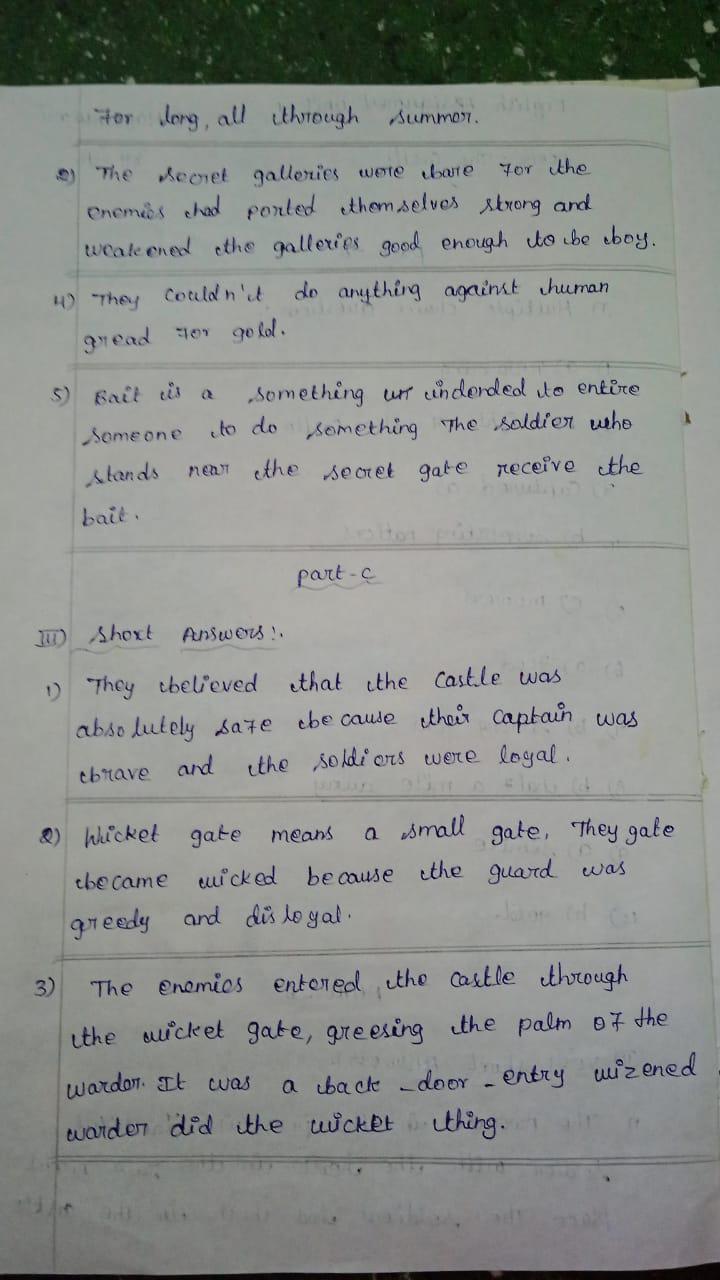 For long, all through summer.
2) The secret galleries were bare for the
enemies had ported themselves strong and
weakened the galleries good enough to be boy.
4) They couldn't do anything against human
gread for gold.
5) Bait is a something urr underded to entire
someone to do something The soldier who
stands near the secret gate receive the
bait.
part-c
III) Short Answers:.
1) They believed that the castle was
absolutely safe because their captain was
brave and the soldiers were loyal.
2) Wicket gate means a small gate, They gate
became wicked because the guard was
greedy and disloyal.
3) The enemies entered the castle through
the wicket gate, greesing the palm of the
warder. It was a back-door-entry wizened
warder did the wicket thing.